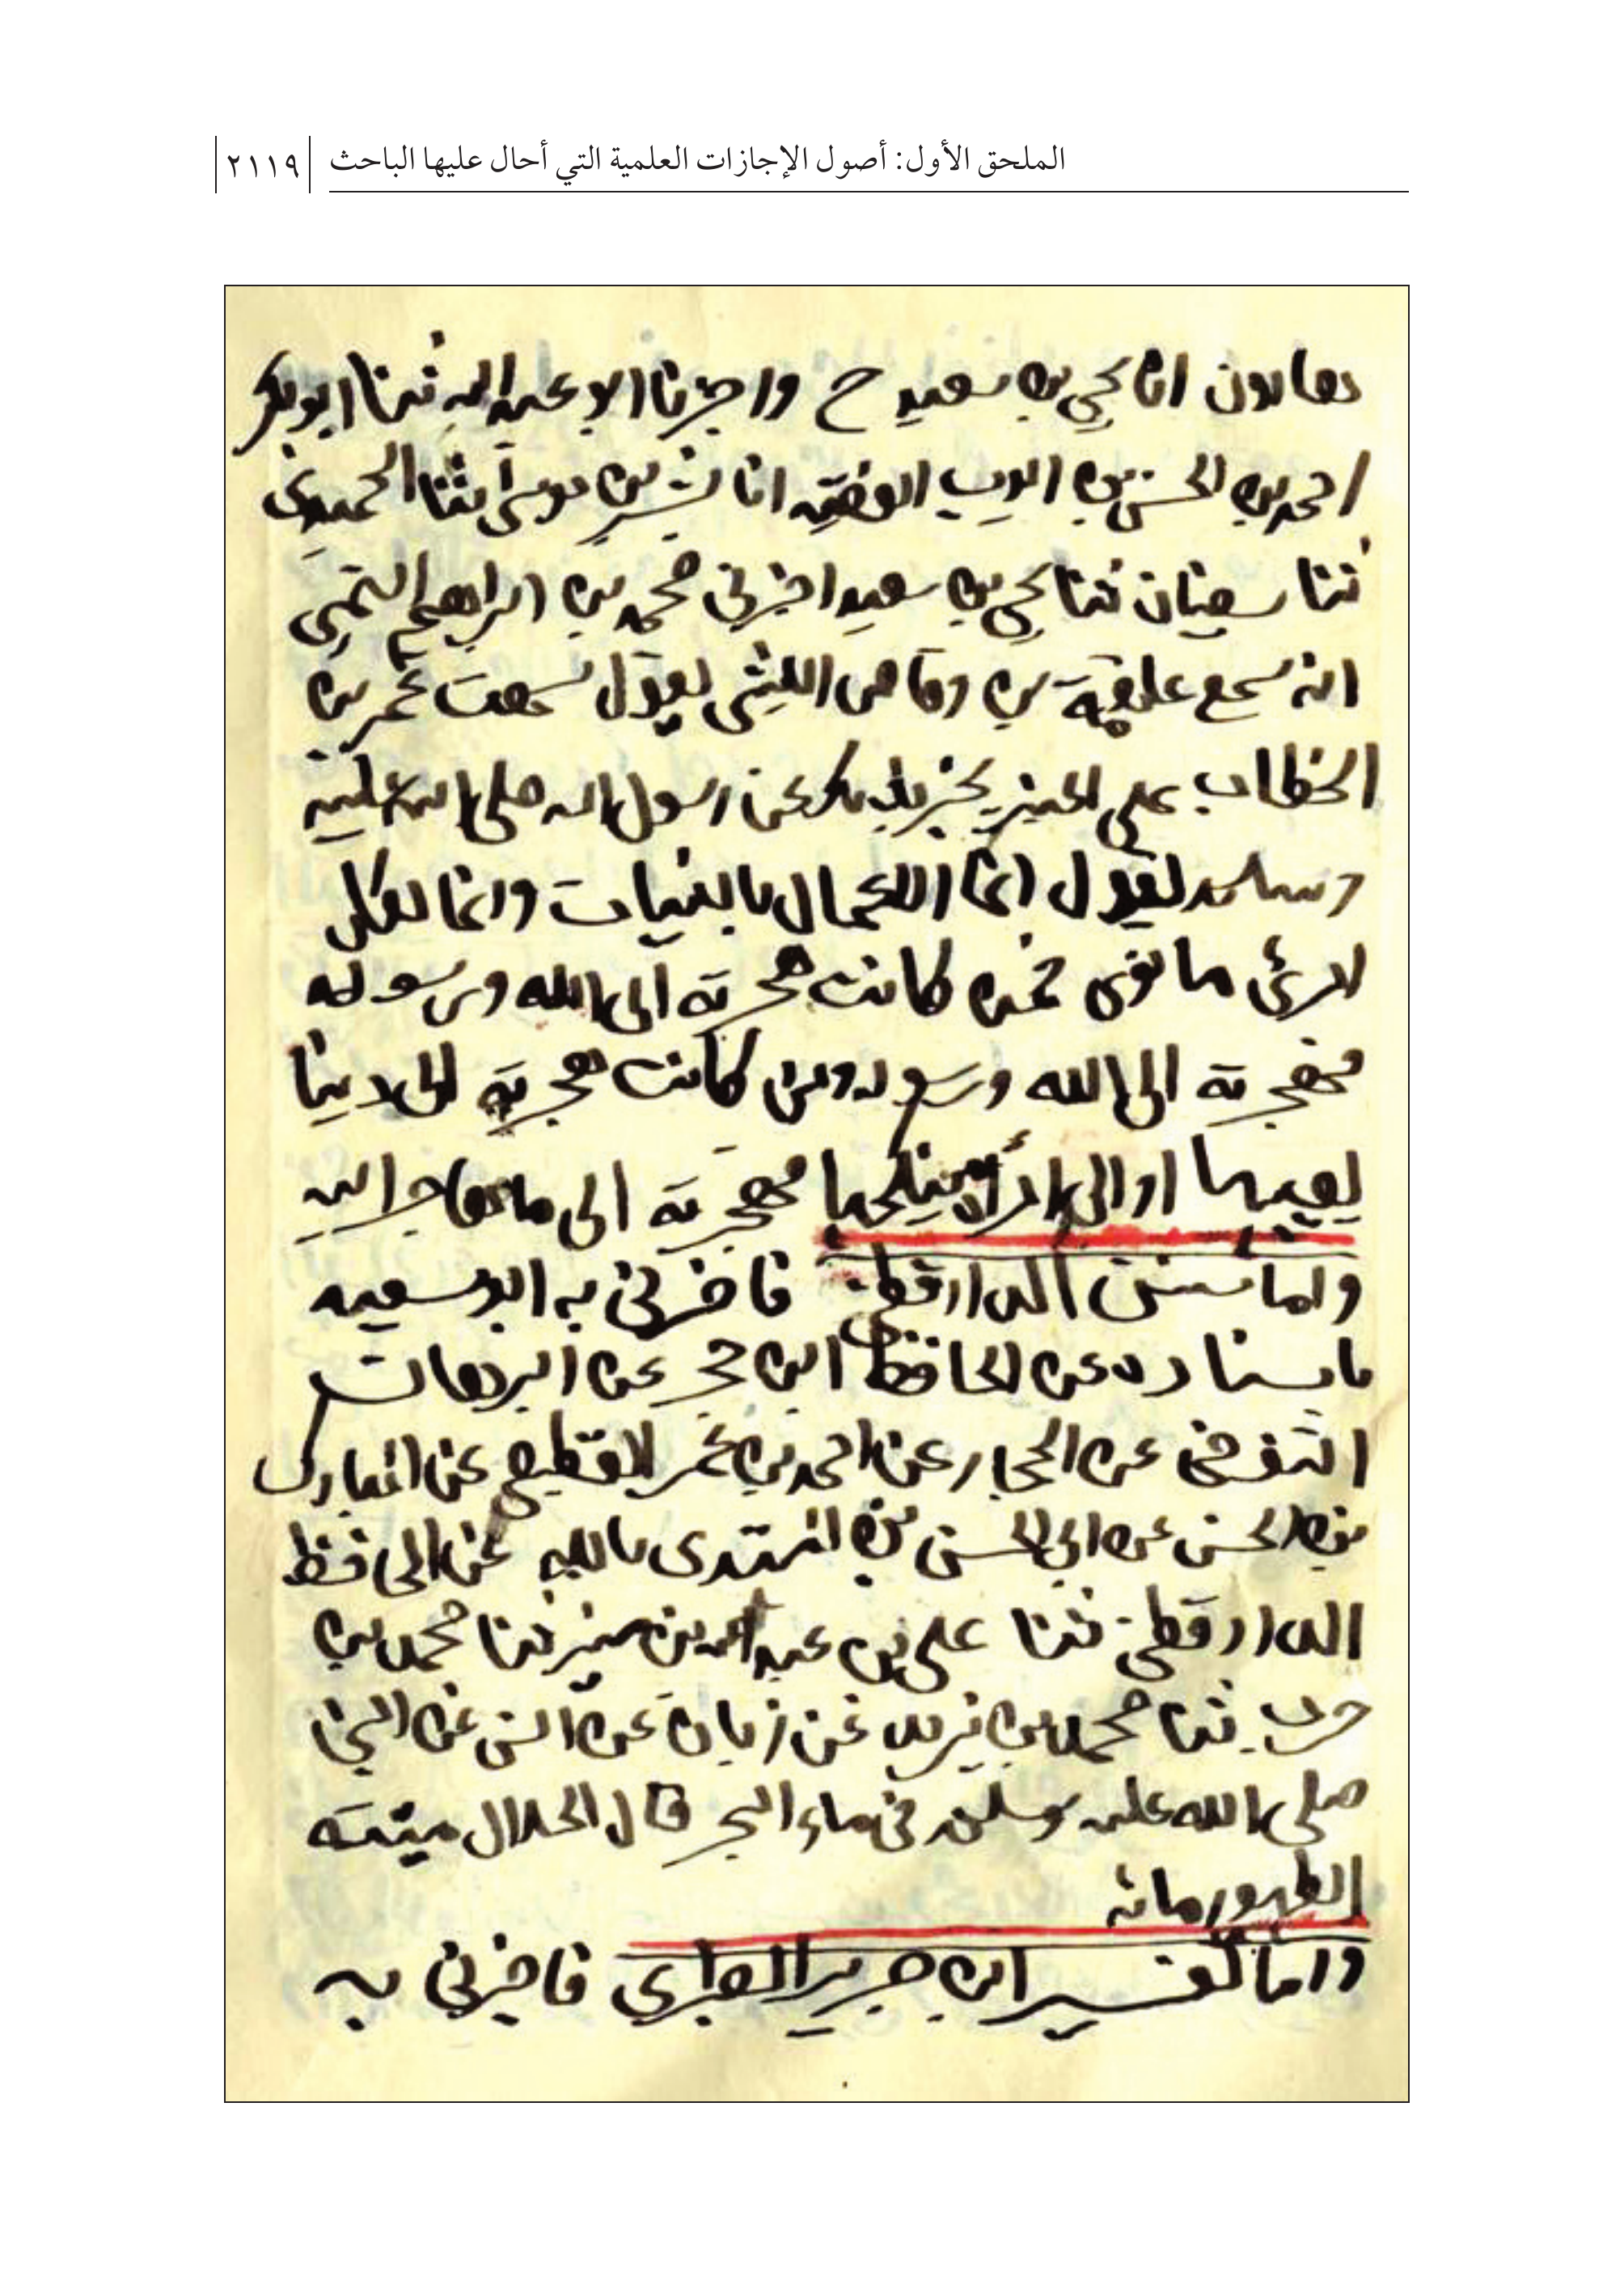 الملحق الأول: أصول الإجازات العلمية التي أحال عليها الباحث
٢١١٩
هارون انا يحيي بن سعيد ح واخبرنا ابو عبد الله ثنا ابو بكر
احمد بن الحسن بن ايوب الفقيه انا بشر بن موسى ثنا الحميدي
ثنا سفيان ثنا يحي بن سعيد اخبرني محمد بن ابراهيم التيمي
انه سمع علقمة بن وقاص الليثي يقول سمعت عمر بن
الخطاب على المنبر يخبر بذلك عن رسول الله صلى الله عليه
وسلم يقول انما الاعمال بالنيات وانما لكل
امرئ ما نوى فمن كانت هجرته الى الله ورسوله
فهجرته الى الله ورسوله ومن كانت هجرته الى دنيا
يصيبها او الى امرأة ينكحها فهجرته الى ما هاجر اليه
واما سنن الدارقطني فاخبرني به ابو سعيد
باسناده عن الحافظ ابن حجر عن البرهان
التنوخي عن الحجار عن احمد بن عمر القطيعي عن المبارك
بن الحسن عن ابي الحسن بن المهتدى بالله عن الحافظ
الدارقطني ثنا علي بن عبد الله بن مبشر ثنا محمد بن
حرب ثنا محمد بن يزيد عن ابان عن انس عن النبي
صلى الله عليه وسلم في ماء البحر قال الحلال ميتته
الطهور مائه
واما تفسير ابن جرير الطبري فاخبرني به